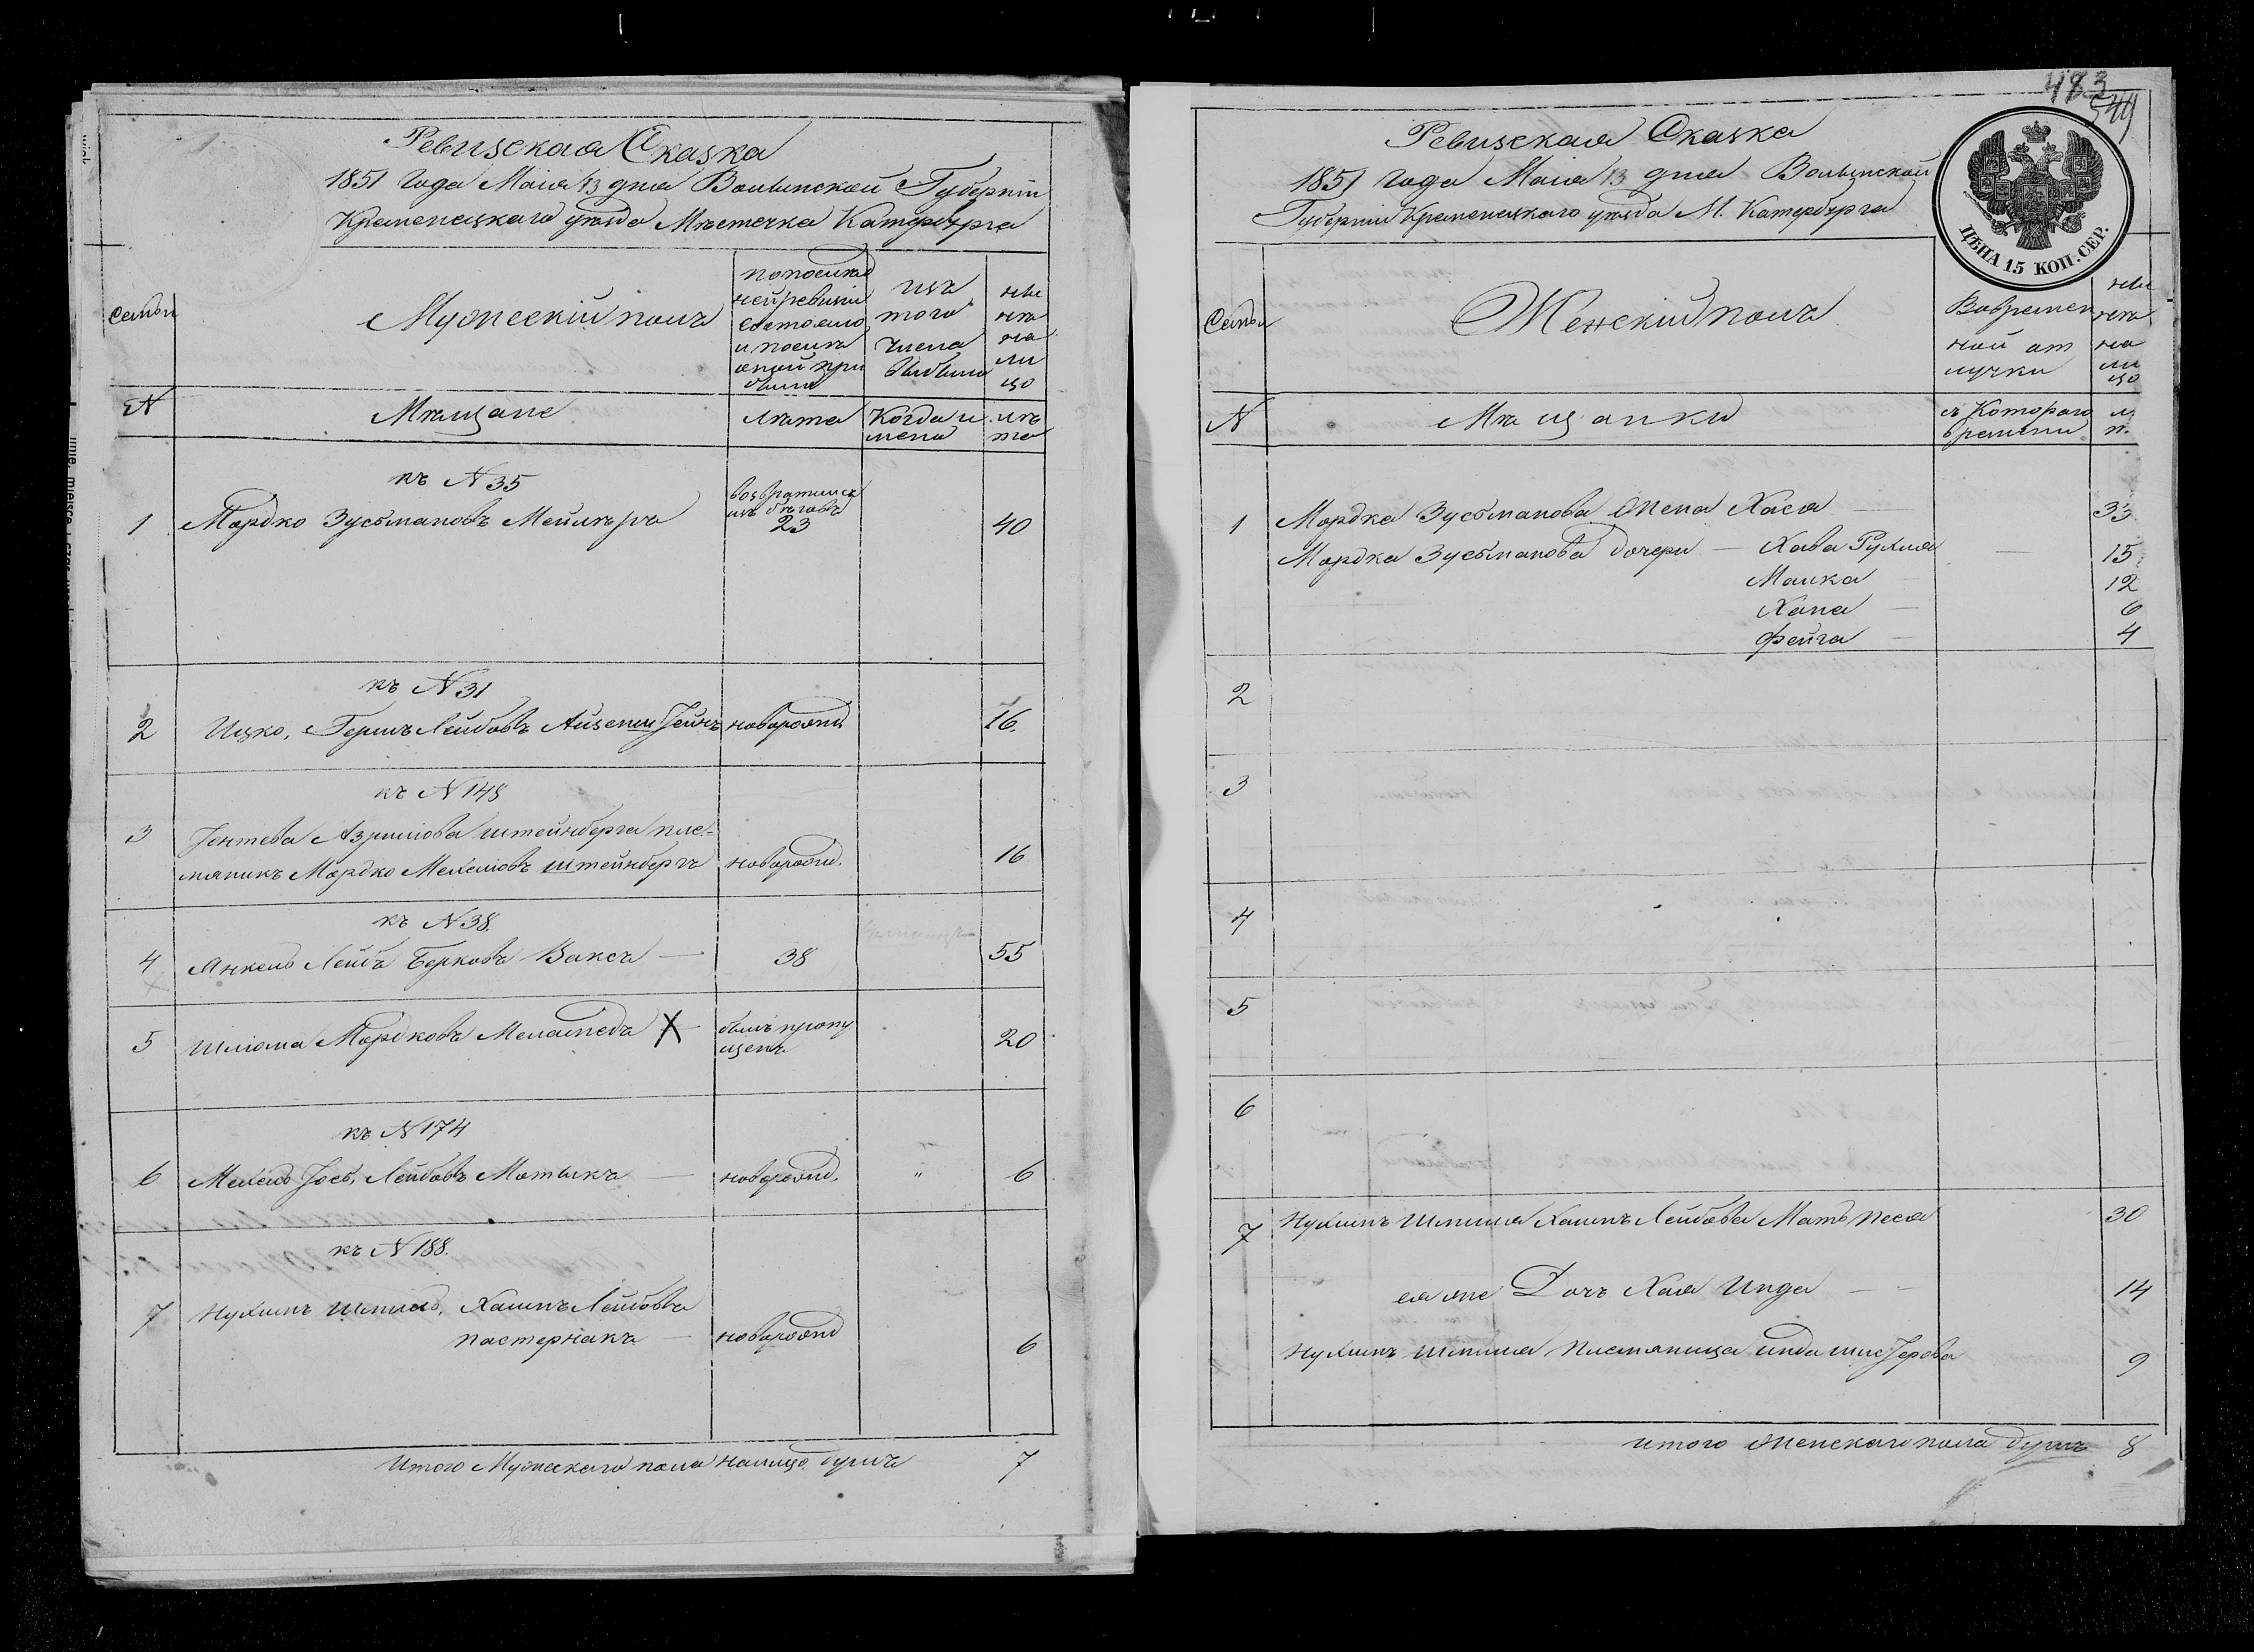 Ревизская Сказка
1851 года Маія 13 дня Волынской Губерніи
Кременецкаго уѣзда Мѣстечка Катербурга
Семьи
Мужескій полъ
по послѣд
ней ревизіи
состояло
и послѣ
оной при
было
изъ
того
числа
выбыло
ны
нѣ
на
ли
цо
№
Мѣщане
лѣта
Когда и
мено
лѣ
та
къ №35
1 Мордко Зусьмановъ Мейлеръ
возвратился
изъ бѣговъ
23
40
къ №31
2 Ицко, Гершъ Лейбовъ Айзеншtейнъ новорожд 16.
къ №148
3 Іонтева Азрилiова штейнберга пле-
мяникъ Мордко Мехелiовъ штейнбергъ новорожд. 16
къ №38.
4 Янкель Лейбъ Берковъ Ваксъ — 38 55
5 Шліома Мордковъ Меламедъ X
былъ пропу
щенъ
20
къ №174
6 Мехель Іось, Лейбовъ Мотыкъ — новорожд. " 6
къ №188.
7 Нухимъ Шмиль, Хаимъ Лейбовъ
пастернакъ — новорожд 6
Итого Мужескаго пола налицо душъ 7
483
549
Ревизская Сказка
1851 года Маія 13 дня Волынской
Губерніи Кременецкаго уѣзда М. Катербурга
ЦѢНА 15 КОП. СЕР.
Семьи
Женскій полъ
Вовремен
ной от
лучки
ны
нѣ
на
ли
цо
№
Мѣщанки
съ Котораго
времени
л.
т.
1 Мордка Зусьманова Жена Хася — 33
Мордка Зусьманова дочери — Хава Рухля 15
Малка 12
Хана — 6
Фейга — 4
2
3
4
5
6
7 Нухимъ Шмиля Хаимъ Лейбова Мать Песя 30
ея же Дочь Хая Инда — 14
Нухимъ Шмиля Племяница Инда 9
итого Женскаго пола душъ 8